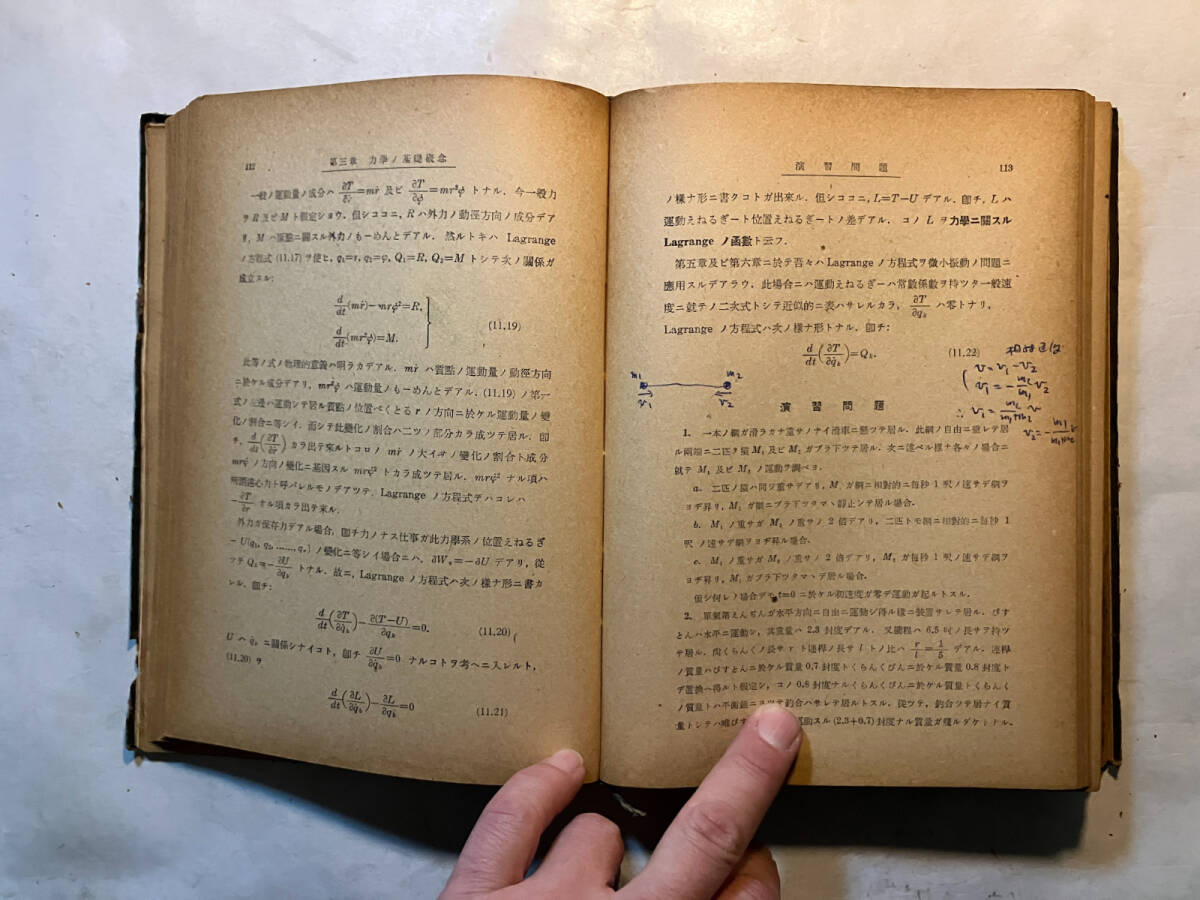 112
第三章 力學ノ基礎概念
一般ノ運動量ノ成分ハ ∂T/∂ṙ=mṙ 及ビ ∂T/∂φ̇=mr²φ̇ トナル．今一般力
ヲ R 及ビ M ト假定ショウ．但シココニ，R ハ外力ノ動徑方向ノ成分デア
リ，M ハ原點ニ關スル外力ノもーめんとデアル．然ルトキハ Lagrange
ノ方程式 (11.17) ヲ使ヒ，q₁=r, q₂=φ, Q₁=R, Q₂=M トシテ次ノ關係ガ
成立スル：
d/dt(mṙ)−mrφ̇²=R,
d/dt(mr²φ̇)=M.
(11.19)
此等ノ式ノ物理的意義ハ明ラカデアル．mṙ ハ質點ノ運動量ノ動徑方向
ニ於ケル成分デアリ，mr²φ̇ ハ運動量ノもーめんとデアル．(11.19) ノ第一
式ノ左邊ハ運動シテ居ル質點ノ位置べくとる r ノ方向ニ於ケル運動量ノ變
化ノ割合ニ等シイ．而シテ此變化ノ割合ハ二ツノ部分カラ成ツテ居ル．卽
チ，d/dt(∂T/∂ṙ) カラ出テ來ルトコロノ mṙ ノ大イサノ變化ノ割合ト成分
mrφ̇ ノ方向ノ變化ニ基因スル mrφ̇² トカラ成ツテ居ル．mrφ̇² ナル項ハ
所謂遠心力ト呼バレルモノデアツテ，Lagrange ノ方程式デハコレハ
−∂T/∂r ナル項カラ出テ來ル．
外力ガ保存力デアル場合，卽チ力ノナス仕事ガ此力學系ノ位置えねるぎ
ー U(q₁, q₂, ……, qₙ) ノ變化ニ等シイ場合ニハ，∂Wₑ=−∂U デアリ，從
ツテ Qₖ=−∂U/∂qₖ トナル．故ニ，Lagrange ノ方程式ハ次ノ樣ナ形ニ書カ
レル．卽チ：
d/dt(∂T/∂q̇ₖ)−∂(T−U)/∂qₖ=0. (11.20)
U ハ q̇ₖ ニ關係シナイコト，卽チ ∂U/∂q̇ₖ=0 ナルコトヲ考ヘニ入レルト，
(11.20) ヲ
d/dt(∂L/∂q̇ₖ)−∂L/∂qₖ=0 (11.21)
演習問題
113
ノ樣ナ形ニ書クコトガ出來ル．但シココニ，L=T−U デアル．卽チ，L ハ
運動えねるぎート位置えねるぎートノ差デアル．コノ L ヲ力學ニ關スル
Lagrange ノ函數ト云フ．
第五章及ビ第六章ニ於テ吾々ハ Lagrange ノ方程式ヲ微小振動ノ問題ニ
應用スルデアラウ．此場合ニハ運動えねるぎーハ常數係數ヲ持ツタ一般速
度ニ就テノ二次式トシテ近似的ニ表ハサレルカラ，∂T/∂qₖ ハ零トナリ，
Lagrange ノ方程式ハ次ノ樣ナ形トナル．卽チ：
d/dt(∂T/∂q̇ₖ)=Qₖ. (11.22)
相対速度
v=v₁−v₂
v₁=−m₂/m₁ v₂
∴ v₁=m₂/m₁+m₂ v
v₂=−m₁/m₁+m₂
m₁ m₂
v₁ v₂
演習問題
1. 一本ノ綱ガ滑ラカナ重サノナイ滑車ニ懸ツテ居ル．此綱ノ自由ニ垂レテ居
ル兩端ニ二匹ノ猿 M₁ 及ビ M₂ ガブラ下ツテ居ル．次ニ述ベル樣ナ各々ノ場合ニ
就テ M₁ 及ビ M₂ ノ運動ヲ調ベヨ．
a. 二匹ノ猿ハ同ジ重サデアリ，M₁ ガ綱ニ相對的ニ毎秒 1 呎ノ速サデ綱ヲ
ヨヂ昇リ，M₂ ガ綱ニブラ下ツタママ靜止シテ居ル場合．
b. M₁ ノ重サガ M₂ ノ重サノ 2 倍デアリ，二匹トモ綱ニ相對的ニ毎秒 1
呎ノ速サデ綱ヲヨヂ昇ル場合．
c. M₁ ノ重サガ M₂ ノ重サノ 2 倍デアリ，M₂ ガ毎秒 1 呎ノ速サデ綱ヲ
ヨヂ昇リ，M₁ ガブラ下ツタママデ居ル場合．
但シ何レノ場合デモ t=0 ニ於ケル初速度ガ零デ運動ガ起ルトスル．
2. 單氣筩えんぢんガ水平方向ニ自由ニ運動シ得ル樣ニ裝置サレテ居ル．ぴす
とんハ水平ニ運動シ，其重量ハ 2.3 封度デアル．又衝程ハ 6.5 吋ノ長サヲ持ツ
テ居ル．尙くらんくノ長サ r ト連桿ノ長サ l トノ比ハ r/l=1/5 デアル．連桿
ノ質量ハぴすとんニ於ケル質量 0.7 封度トくらんくぴんニ於ケル質量 0.8 封度ト
デ置換ヘ得ルト假定シ，コノ 0.8 封度ナルくらんくぴんニ於ケル質量トくらんく
ノ質量トハ平衡錘ニヨツテ釣合ハサレテ居ルトスル．從ツテ，釣合ツテ居ナイ質
量トシテハ唯ぴす 運動スル (2.3+0.7) 封度ナル質量ガ殘ルダケトナル．